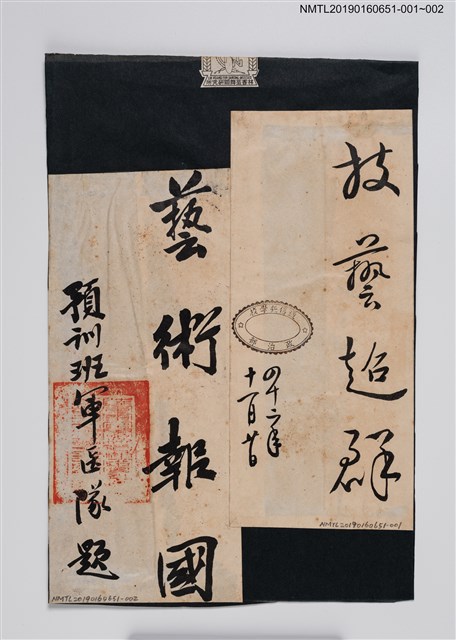 NMTL20190160651-001~002
技藝超群
政治部
四十二年
十一月廿日
NMTL20190160651-001
藝術報國
預訓班軍医隊題
NMTL20190160651-002